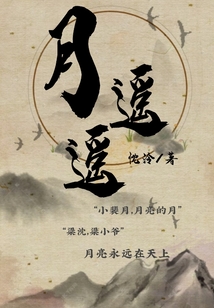 月遥遥
愧怜/著
“小龚月,月亮的月”
“梁沈,梁小爷”
月亮永远在天上